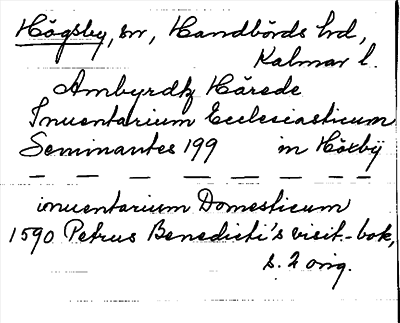 Högsby, sn, Handbörds hd,
Kalmar l.
Ambyrdh Härede
Inuentarium Ecclesiasticum
Seminantes 199 in Höxbÿ
inuentarium Domesticum
1590 Petrus Benedicti's visit.-bok,
s. 2 orig.